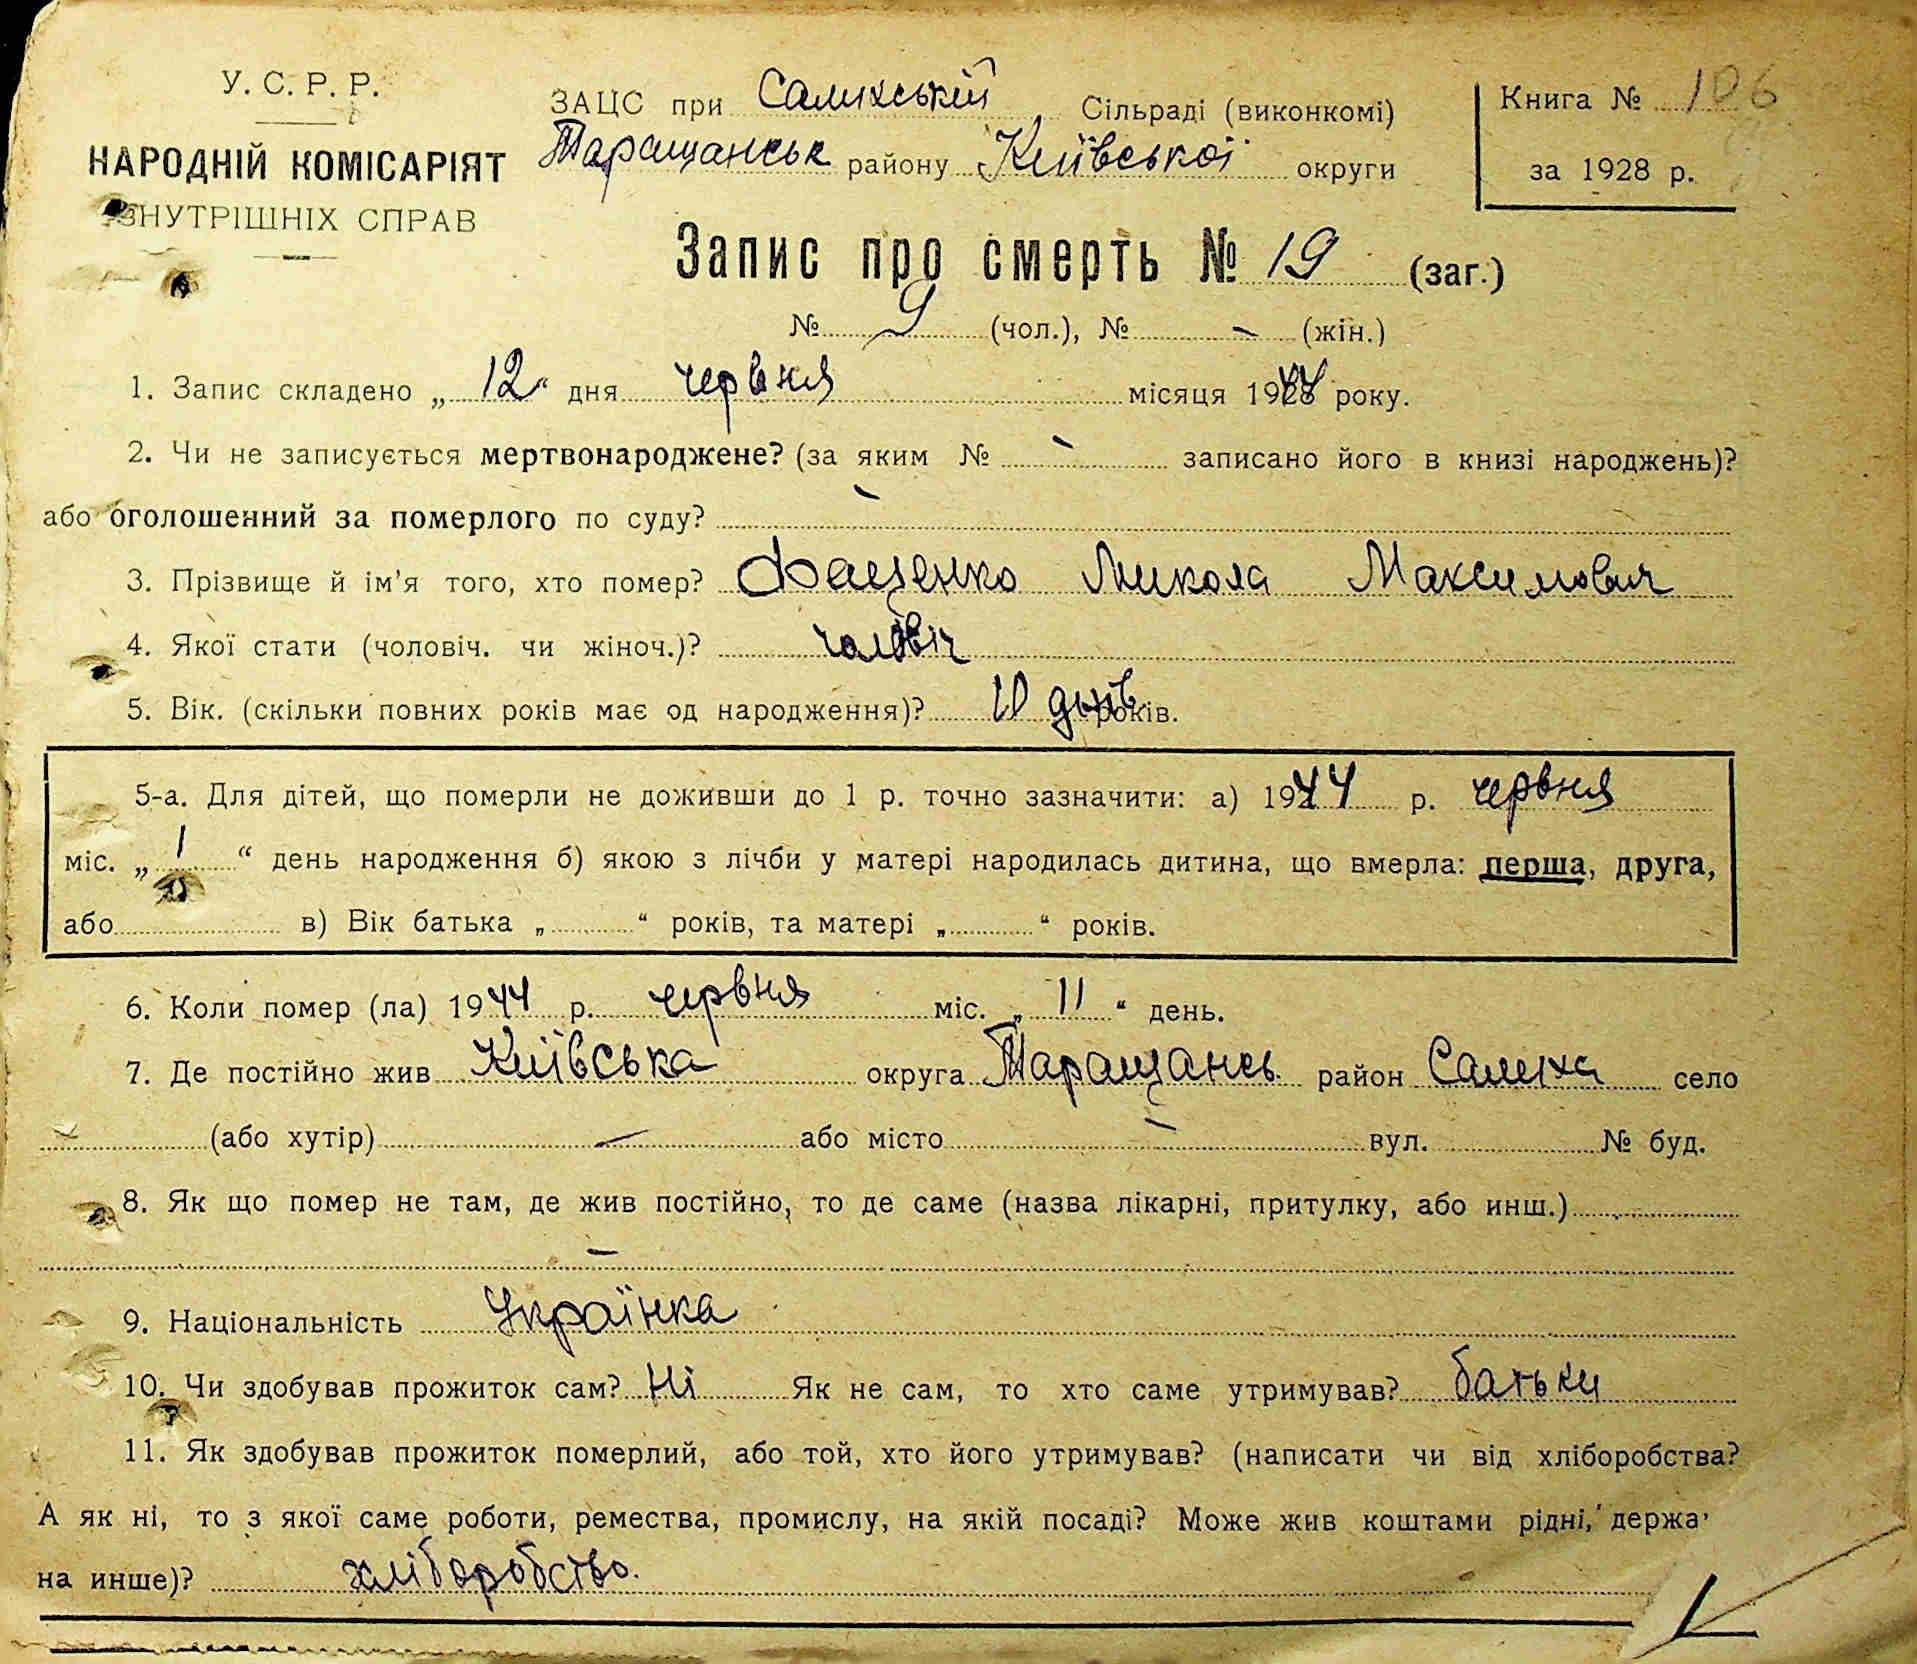 У. С. Р. Р.
НАРОДНІЙ КОМІСАРІЯТ
ВНУТРІШНІХ СПРАВ
ЗАЦС при Салихській Сільраді (виконкомі)
Таращанськ району Київської округи
Книга № 106
за 1928 р.
Запис про смерть № 19 (заг.)
№ 9 (чол.), № - (жін.)
1. Запис складено „ 12 " дня червня місяця 1944 року.
2. Чи не записується мертвонароджене? (за яким № - записано його в книзі народжень)?
або оголошенний за померлого по суду? -
3. Прізвище й ім'я того, хто помер? Фащенко Микола Максимович
4. Якої стати (чоловіч. чи жіноч.)? чоловіч
5. Вік. (скільки повних років має од народження)? 10 днів років.
5-а. Для дітей, що померли не доживши до 1 р. точно зазначити: а) 1944 р. червня
міс. „ 1 " день народження б) якою з лічби у матері народилась дитина, що вмерла: перша, друга,
або в) Вік батька „ " років, та матері „ " років.
6. Коли помер (ла) 1944 р. червня міс. „ 11 " день.
7. Де постійно жив Київська округа Таращансь. район Салиха село
(або хутір) - або місто - вул. № буд.
8. Як що помер не там, де жив постійно, то де саме (назва лікарні, притулку, або инш.)
-
9. Національність Українка
10. Чи здобував прожиток сам? Ні Як не сам, то хто саме утримував? батьки
11. Як здобував прожиток померлий, або той, хто його утримував? (написати чи від хліборобства?
А як ні, то з якої саме роботи, ремества, промислу, на якій посаді? Може жив коштами рідні, держа'
на инше)? хліборобство.